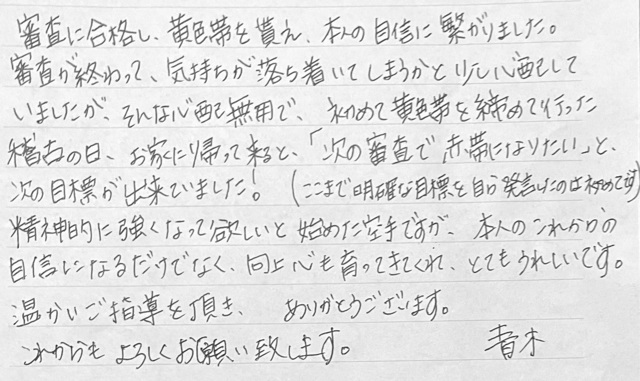 審査に合格し、黄色帯を貰え、本人の自信に繋がりました。
審査が終わって、気持ちが落ち着いてしまうかと少し心配して
いましたが、そんな心配無用で、初めて黄色帯を締めて行った
稽古の日、お家に帰って来ると、「次の審査で赤帯になりたい」と、
次の目標が出来ていました！（ここまで明確な目標を自ら発言したのは初めてです）
精神的に強くなって欲しいと始めた空手ですが、本人のこれからの
自信になるだけでなく、向上心も育ってきてくれ、とてもうれしいです。
温かいご指導を頂き、ありがとうございます。
これからもよろしくお願い致します。 青木